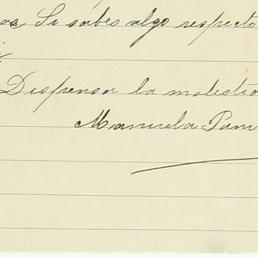 Si sabes algo respecto
Dispensa la molestia
Manuela